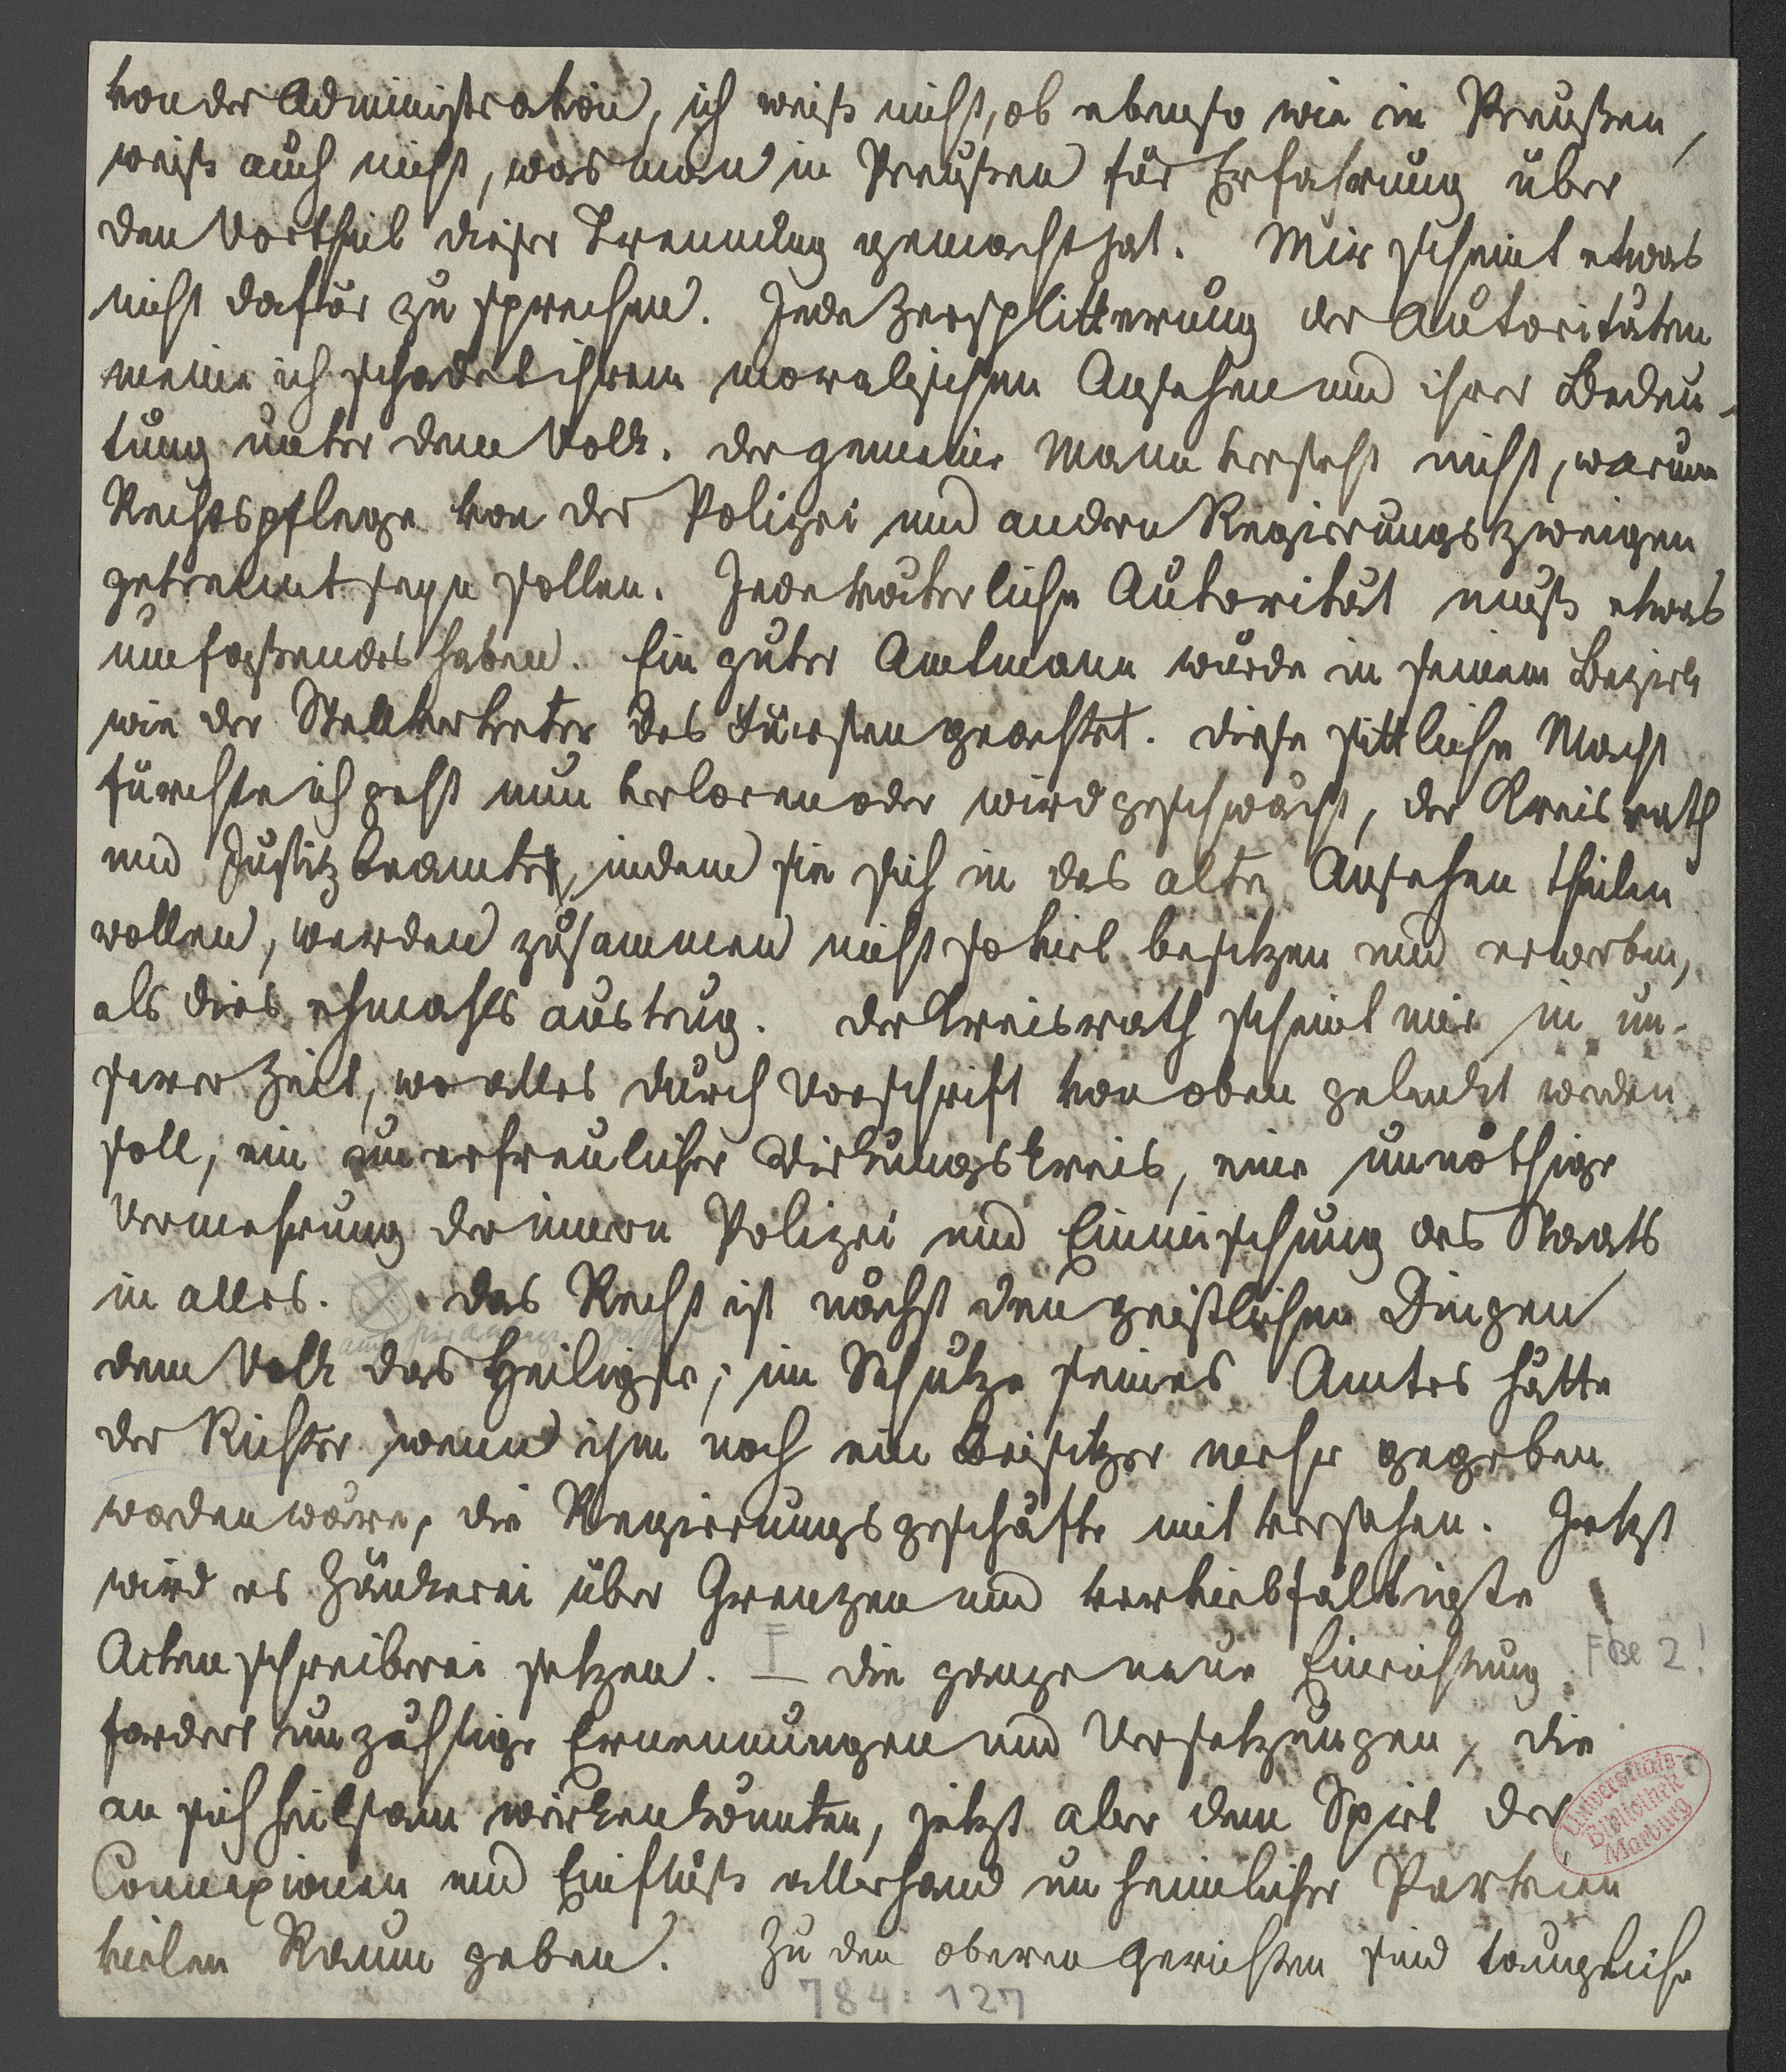 von der Administration, ich weiß nicht, ob ebenso wie in Preußen,
weiß auch nicht, was man in Preußen für Erfahrung über
den Vortheil dieser Trennung gemacht hat. Mir scheint etwas
nicht dafür zu sprechen. Jede Zersplitterung der Autoritäten
meine ich schadet ihrem moralischen Ansehen und ihrer Bedeu-
tung unter dem Volk. der gemeine Mann versteht nicht, warum
Rechtspflege von der Polizei und andern Regierungszweigen
getrennt seyn sollen. Jede väterliche Autorität muß etwas
umfaßendes haben. Ein guter Amtmann wurde in seinem Bezirk
wie der Stellvertreter des Fürsten geachtet. diese sittliche Macht
fürchte ich geht nun verloren oder wird geschwächt, der Kreisrath
und Justizbeamte, indem sie sich in das alte Ansehen theilen
wollen, werden zusammen nicht so viel besitzen und erwerben,
als dies ehmahls austrug. der Kreisrath scheint mir in un-
serer Zeit, wo alles durch Vorschrift von oben gelenkt werden
soll, ein unerfreulicher Wirkungskreis, eine unnöthige
Vermehrung der innern Polizei und Einmischung des Staats
in alles. das Recht ist nächst den geistlichen Dingen
dem Volk das Heiligste; im Schutze seines Amtes hätte
der Richter wenn ihm noch ein Beisitzer mehr gegeben
worden wäre, die Regierungsgeschäfte mit versehen. Jetzt
wird es Zänkerei über Grenzen und vervielfältigte
Actenschreiberei setzen. F — die ganze neue Einrichtung F Bl 2!
fordert unzählige Ernennungen und Versetzungen, die
an sich heilsam wirken könnten, jetzt aber dem Spiel der
Connexionen und Einfluß allerhand unheimlicher Parteien
vielen Raum geben. Zu den oberen Gerichten sind taugliche
Universitäts-
Bibliothek
Marburg
784:127